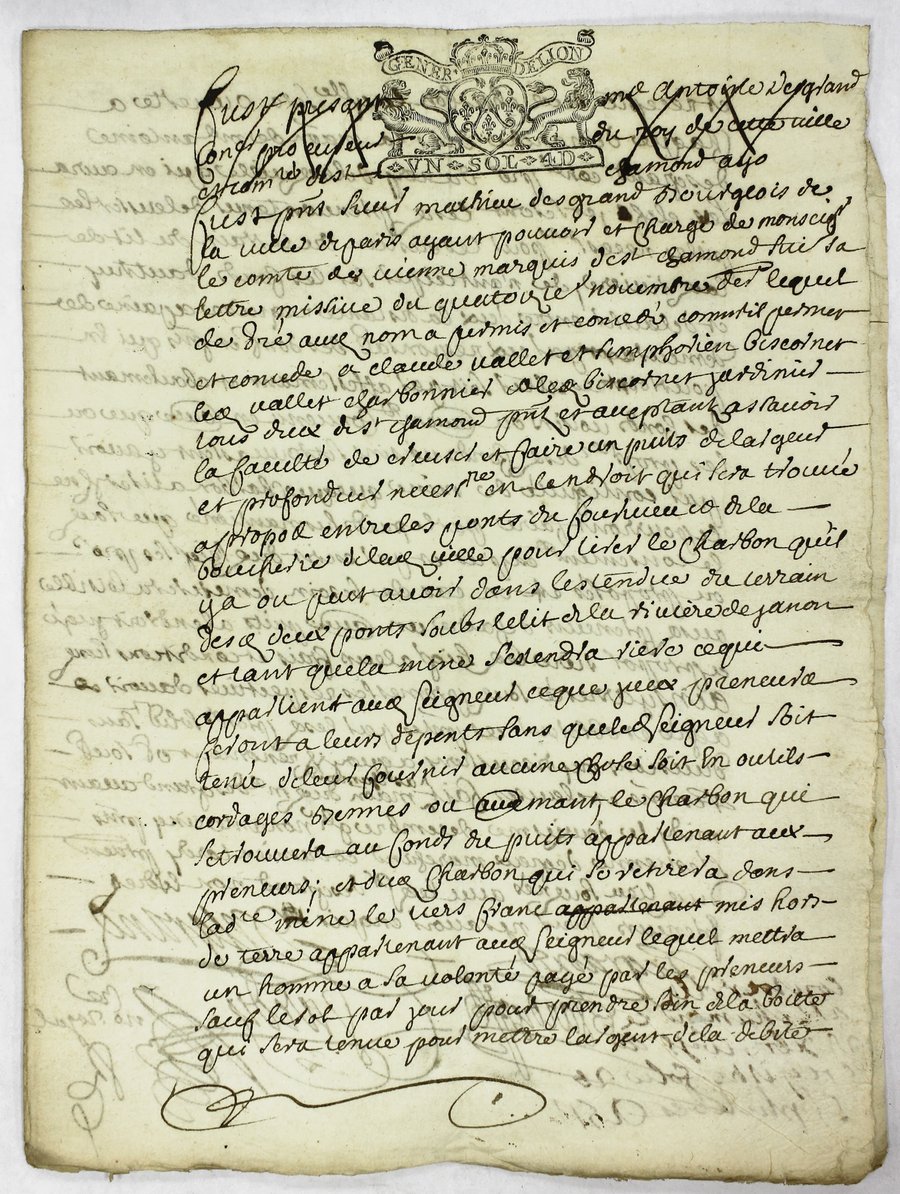 GENER DELION
VN SOL 4D
Fust présant me Antoine desgrand
Conr procureur du roy de cette ville
et comté de st chamond ayo
Fust pnt sieur mathieu desgrand Bourgeois de
la ville de paris ayant pouvoir et charge de monseigr
le comte de vienne marquis de st chamond sui sa
lettre missive du quatorze novembre der lequel
de gré aud nom a permis et concedé comme il permet
et concede a claude vallet et simphorien biscornet
led vallet charbonnier et led biscornet jardinier
tous deux de st chamond pnt et acceptant assavoir
la faculté de creuser et faire un puits de largeur
et profondeur necessre en lendroit qui sera trouvé
a propos entre les ponts du et de la
boucherie de lad ville pour tirer le charbon quil
y a ou peut avoir dans lestendue du terrain
desd deux ponts soubs le lit de la riviere de janon
et tant que la mine sestendra riere ce qui
appartient aud seigneur ce que yceux preneurs
feront a leurs depents sans que led seigneur soit
tenu de leur fournir aucune chose soit En outils
cordages bennes ou autrement, le charbon qui
se trouvera au fonds du puits appartenant aux
preneurs; et dud charbon qui se retirera dans
ladte mine le tiers franc appartenant mis hors
de terre appartenant aud seigneur lequel mettra
un homme a sa volonté payé par les preneurs
sauf le sol par jour pour prendre soin de la boitte
qui sera tenue pour mettre largent de la debite